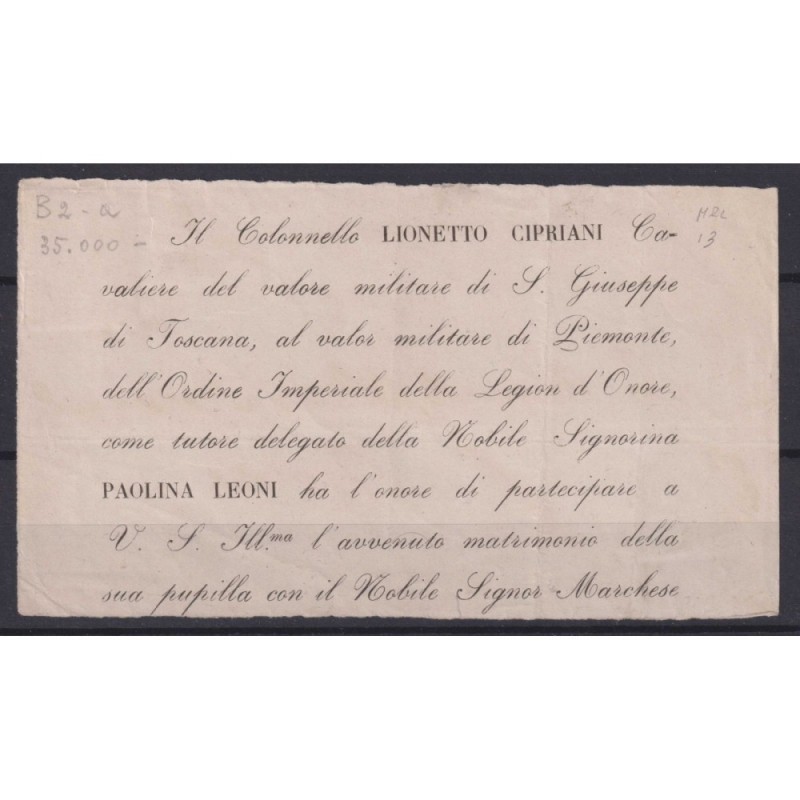 B2-a
35.000 -
MRL
13
Il Colonnello LIONETTO CIPRIANI Ca-
valiere del valore militare di S. Giuseppe
di Toscana, al valor militare di Piemonte,
dell'Ordine Imperiale della Legion d'Onore,
come tutore delegato della Nobile Signorina
PAOLINA LEONI ha l'onore di partecipare a
V. S. Ill.ma l'avvenuto matrimonio della
sua pupilla con il Nobile Signor Marchese